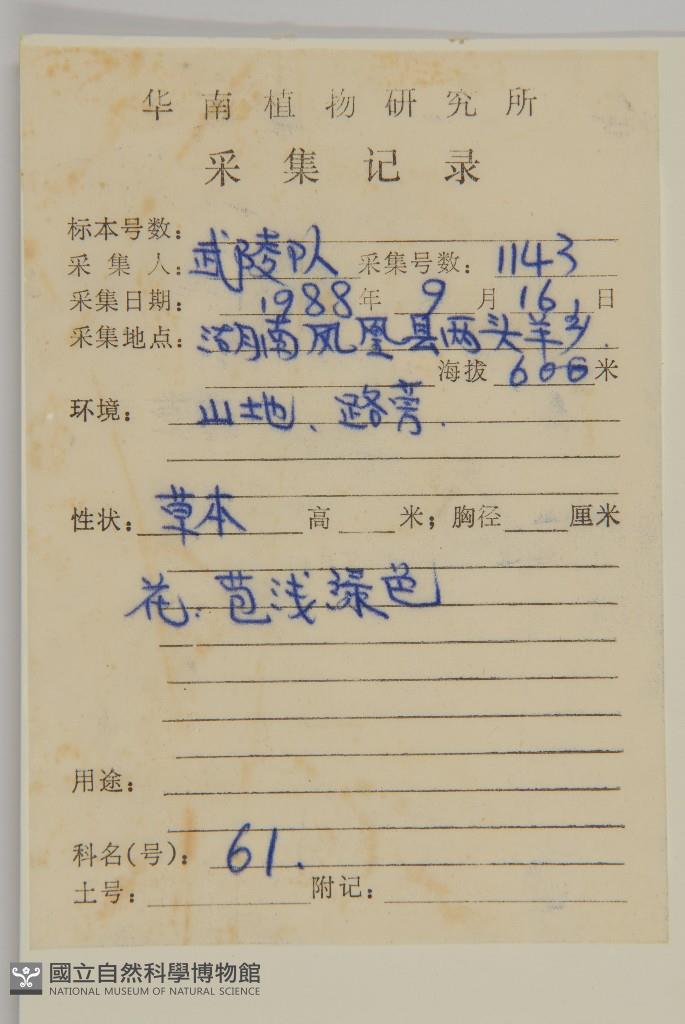 华南植物研究所
采集记录
标本号数：
采集人：武陵队 采集号数：1143
采集日期：1988年9月16日
采集地点：湖南凤凰县两头羊乡.
海拔 600 米
环境：山地、路旁.
性状：草本 高 米；胸径 厘米
花：苞浅绿色
用途：
科名(号)：61.
土号： 附记：
國立自然科學博物館
NATIONAL MUSEUM OF NATURAL SCIENCE